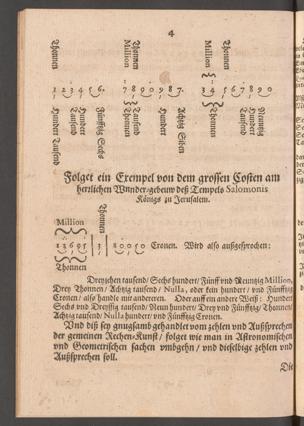 4
Thonnen
Thonnen
Million
Million
Thonnen
1 2 3 4 5 6. 7 8 9 0 9 8 7. 3 4 5 6 7 8 9 0
Hundert Tausend
Tausend
Hundert
Fünfftzig Sechs
Thonnen
Tausend
Hundert
Achtzig Siben
Thonnen
Tausend
Hundert
Neuntzig
Folget ein Exempel von dem grossen Costen am
herrlichen Wunder-gebeuw deß Tempels Salomonis
Königs zu Jerusalem.
Thonnen
Million
13695 | 3 | 80050 Cronen. Wird also außgesprochen:
Thonnen
Dreyzehen tausend / Sechs hundert / Fünff vnd Neuntzig Million,
Drey Thonnen / Achtzig tausend / Nulla, oder kein hundert / vnd Fünfftzig
Cronen / also handle mit anderen. Oder auff ein andere Weiß: Hundert
Sechs vnd Dreyssig tausend / Neun hundert / Drey vnd Fünfftzig / Thonnen /
Achtzig tausend / Nulla hundert / vnd Fünfftzig Cronen.
Vnd diß sey gnugsamb gehandlet vom zehlen vnd Außsprechen
der gemeinen Rechen-Kunst / folget wie man in Astronomischen
vnd Geometrischen sachen vmbgehn / vnd dieselbige zehlen vnd
Außsprechen soll.
Die